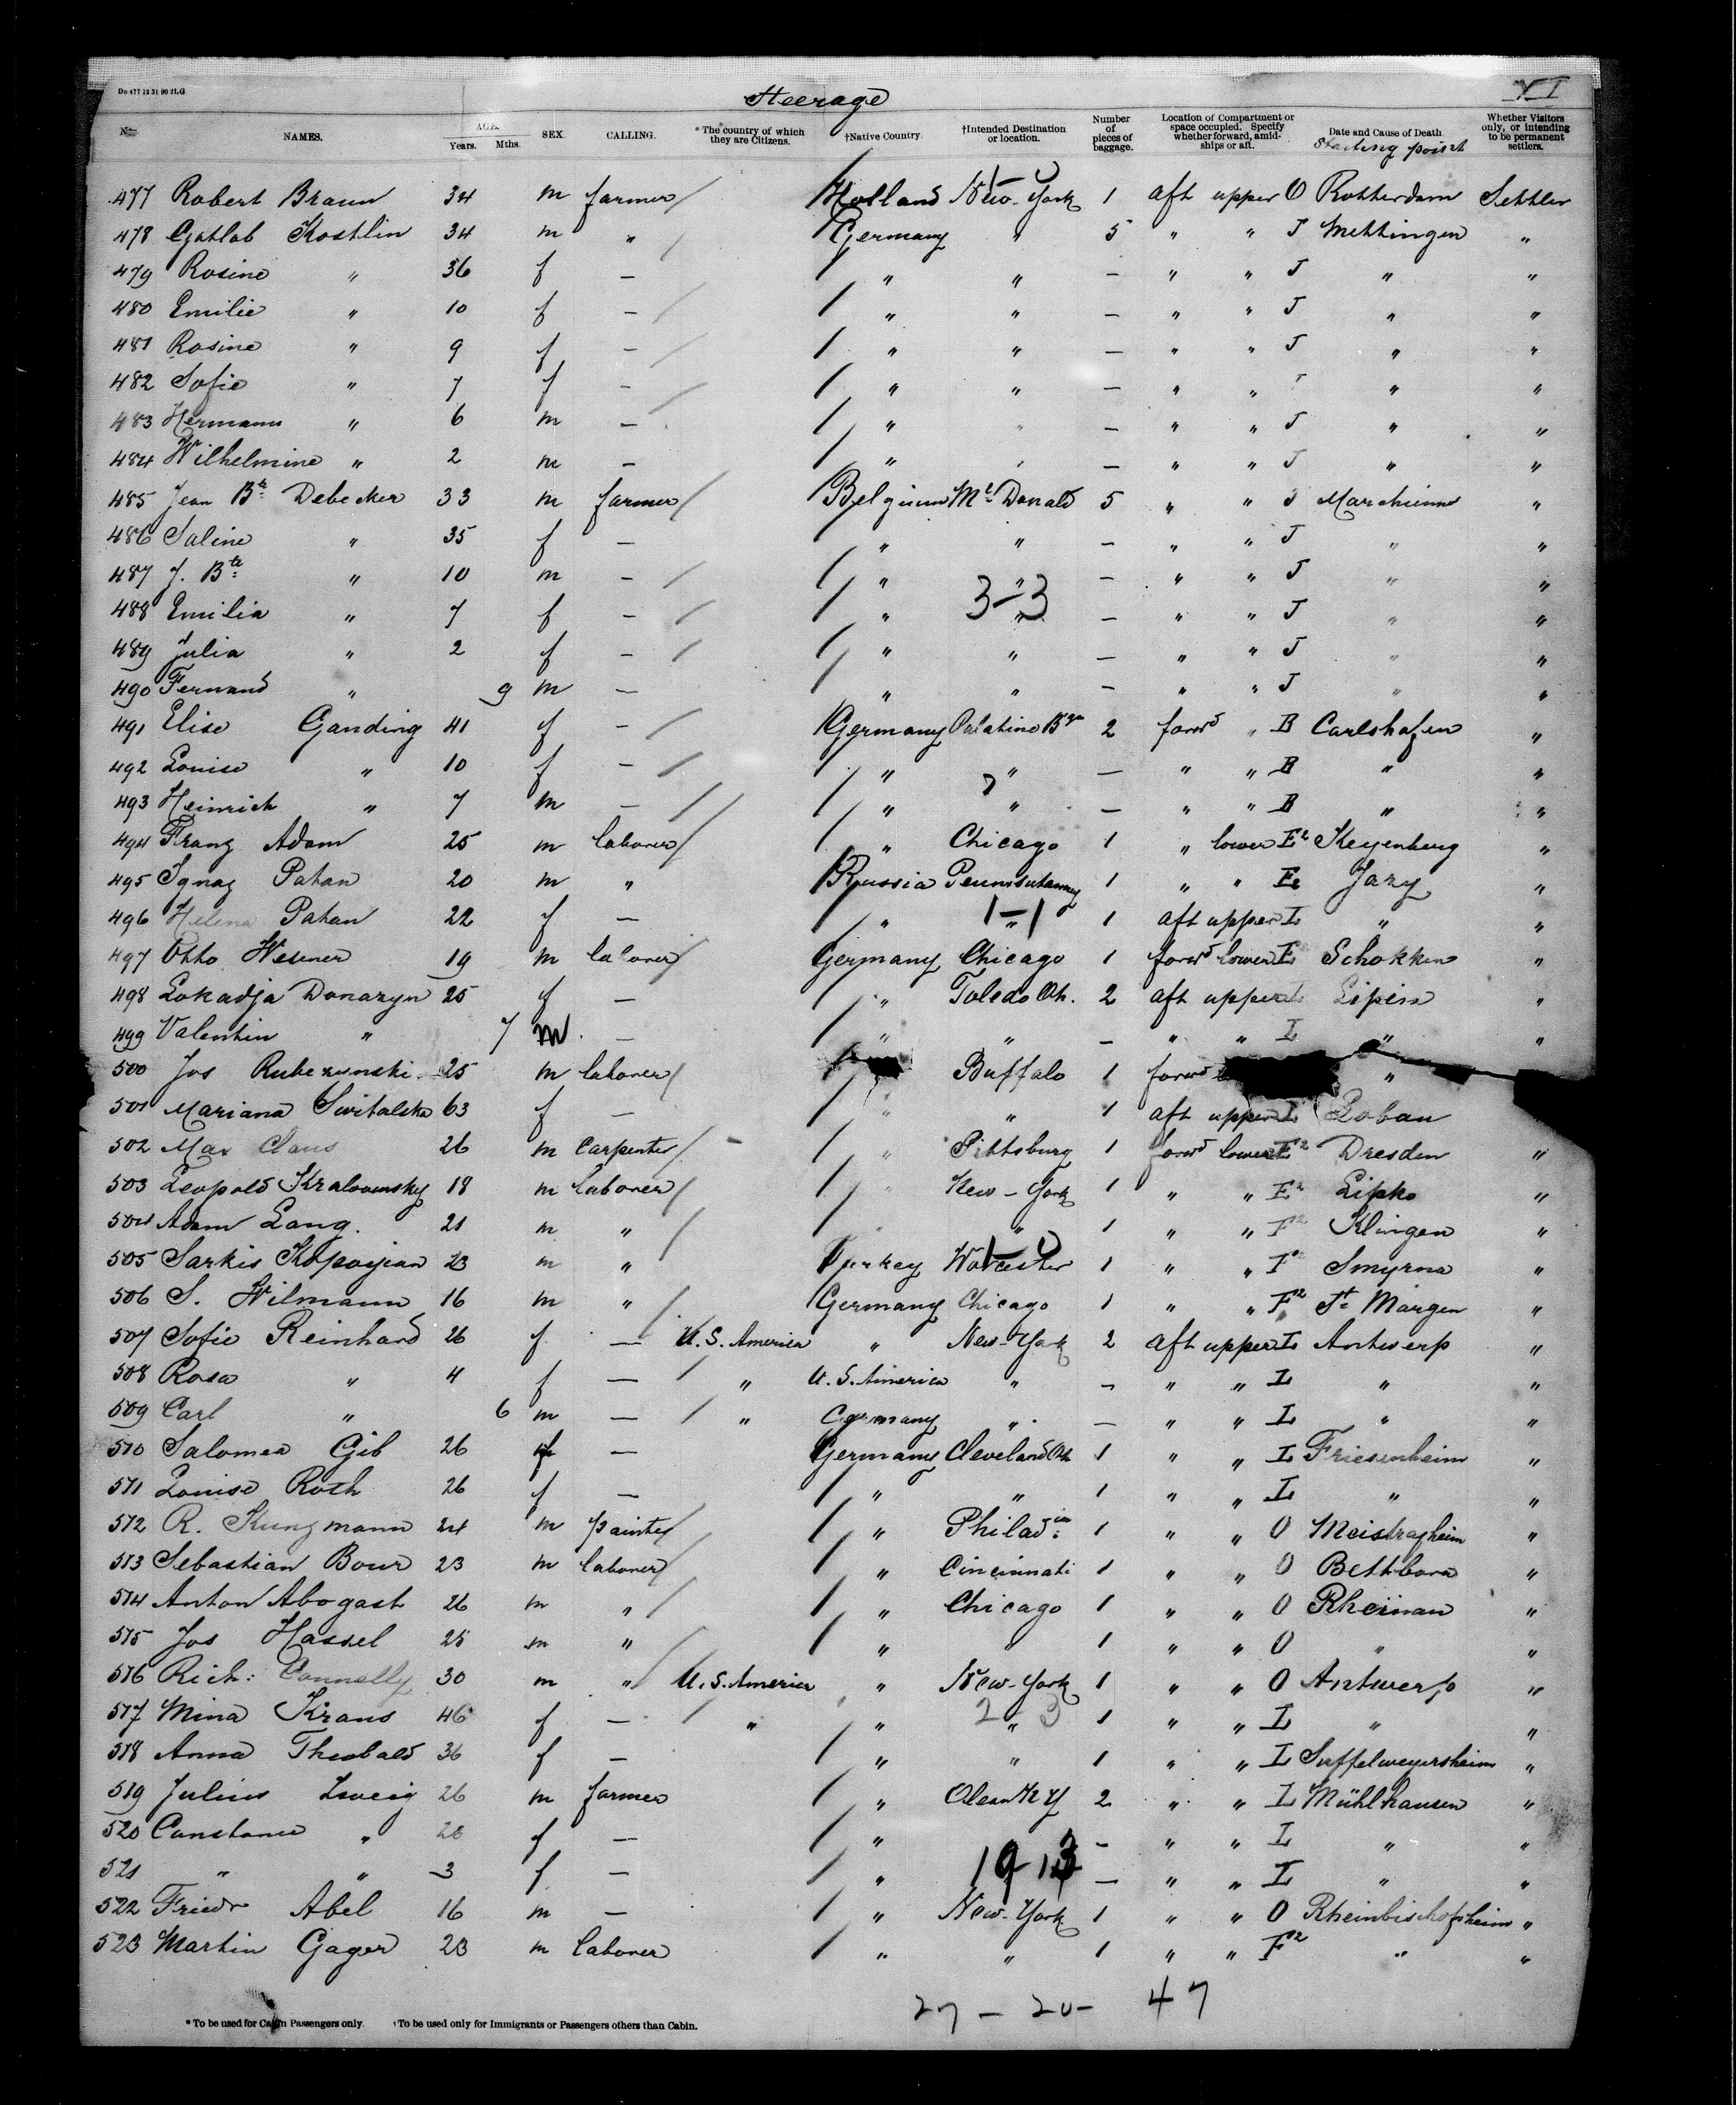 Do 477 12 31 90 2LG
Steerage
VI
No. NAMES. AGE. Years. Mths. SEX. CALLING. *The country of which they are Citizens. †Native Country. †Intended Destination or location. Number of pieces of baggage. Location of Compartment or space occupied. Specify whether forward, amidships or aft. Date and Cause of Death Starting point Whether Visitors only, or intending to be permanent settlers.
477 Robert Braun 34 m farmer / Holland New-York 1 aft upper O Rotterdam Settler
478 Gotlob Kostlin 34 m " / Germany " 5 " " J Mettingen "
479 Rosine " 36 f — / " " — " " J " "
480 Emilie " 10 f — / / " " — " " J " "
481 Rosine " 9 f — / / " " — " " J " "
482 Sofie " 7 f — / / " " — " " J " "
483 Hermann " 6 m — / / " " — " " J " "
484 Wilhelmine " 2 m — / " " — " " J " "
485 Jean Bte Debecker 33 m farmer / Belgium Mc Donald 5 " " J Marchienne "
486 Saline " 35 f — / " " — " " J " "
487 J. Bte " 10 m — / / " " — " " J " "
3-3
488 Emilia " 7 f — / / " " — " " J " "
489 Julia " 2 f — / / " " — " " J " "
490 Fernand " 9 m — / " " — " " J " "
491 Elise Ganding 41 f — / Germany Palatine 2 forwd " B Carlshafen "
492 Louise " 10 f — / / " " — " " B " "
493 Heinrich " 7 m — / / " " — " " B " "
494 Franz Adam 25 m laborer / / " Chicago 1 " lower E2 Keyenberg "
495 Ignaz Patan 20 m " Russia 1 " " E2 Jazy "
496 Helena Patan 22 f — / " " 1 aft upper L " "
1-1
497 Otto Wesener 19 m laborer / Germany Chicago 1 forwd lower E Schokken "
498 Lokadja Donazyn 25 f — / " Toledo Oh. 2 aft upper L Lipin "
499 Valentin " 7 m — / " " — " " L " "
500 Jos 25 m laborer / Buffalo 1 forwd "
501 Mariana Switalska 63 f — / " " 1 aft upper L Loban
502 Max Claus 26 m carpenter / / " Pittsburg 1 forwd lower E2 Dresden "
503 Leopold Kralovensky 18 m laborer / / " New-York 1 " " E2 Lipko "
504 Adam Lang. 21 m " / / " " 1 " " F2 Klingen "
505 Sarkis Kopoyian 23 m " Turkey Worcester 1 " " F2 Smyrna "
506 S. Wilmann 16 m " / Germany Chicago 1 " " F2 St. Margen "
507 Sofie Reinhard 26 f — / U.S. America " New-York 2 aft upper L Antwerp "
508 Rosa " 4 f — / " U.S. America " — " " L " "
509 Carl " 6 m — / " Germany " — " " L " "
510 Salomea Gib 26 f — Germany Cleveland Oh 1 " " L Friesenheim "
511 Louise Roth 26 f — / " " 1 " " L " "
512 R. Kungmann 24 m painter / / " Philadia 1 " " O Meistragheim "
513 Sebastian Bour 23 m laborer / / " Cincinnati 1 " " O Bettborn "
514 Anton Abogast 26 m " / / " Chicago 1 " " O Rheinau "
515 Jos Hassel 25 m " / / " " 1 " " O " "
516 Rich: Connelly 30 m " / U.S. America " New-York 1 " " O Antwerp "
517 Mina Kraus 46 f — / " " " 1 " " L " "
2 3
518 Anna Theobald 36 f — / " " 1 " " L Suffelweyersheim "
519 Julius Zweig 26 m farmer / " Olean N Y 2 " " L Mühlhausen "
520 Constance " 26 f — / " — " " L " "
521 " " 3 f — / " — " " L " "
522 Friedr Abel 16 m — / " New-York 1 " " O Rheinbischofsheim "
523 Martin Gager 23 m laborer / " " 1 " " F2 " "
27 — 20 — 47
*To be used for Cabin Passengers only. †To be used only for Immigrants or Passengers others than Cabin.